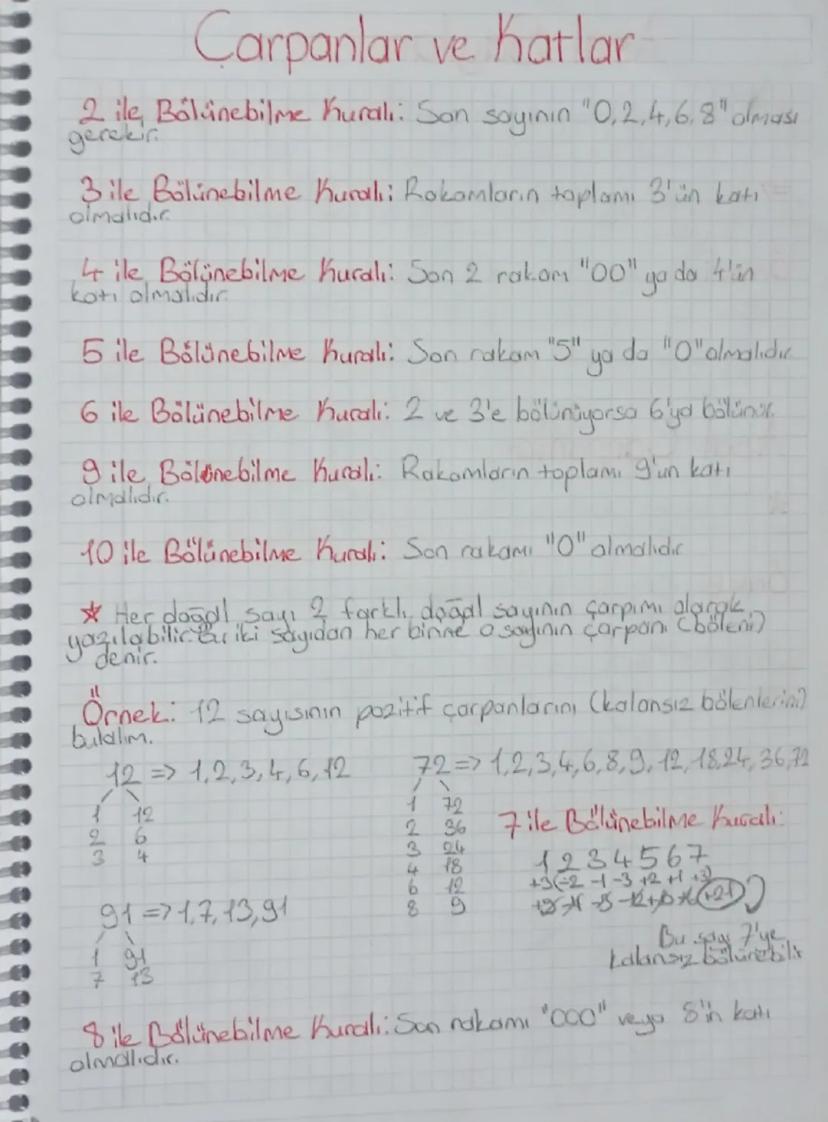 Çarpanlar ve Katlar
2 ile Bölünebilme Kuralı: Son sayının "0,2,4,6,8" olması
gerekir.
3 ile Bölünebilme Kuralı: Rakamların toplamı 3'ün katı
olmalıdır.
4 ile Bölünebilme Kuralı: Son 2 rakam "00" ya da 4'ün
katı olmalıdır.
5 ile Bölünebilme Kuralı: Son rakam "5" ya da "0" olmalıdır
6 ile Bölünebilme Kuralı: 2 ve 3'e bölünüyorsa 6'ya bölünür.
9 ile Bölünebilme Kuralı: Rakamların toplamı 9'un katı
olmalıdır.
10 ile Bölünebilme Kuralı: Son rakamı "0" olmalıdır
★ Her doğal sayı 2 farklı doğal sayının çarpımı olarak
yazılabilir. Bu iki sayıdan her birine o sayının çarpanı (böleni)
denir.
Örnek: 12 sayısının pozitif çarpanlarını (kalansız bölenlerini)
bulalım.
12 => 1,2,3,4,6,12
1 12
2 6
3 4
72 => 1,2,3,4,6,8,9,12,18,24,36,72
1 72
2 36
3 24
4 18
6 12
8 9
7 ile Bölünebilme Kuralı:
1 2 3 4 5 6 7
+3(-2 -1 -3 +2 +1 +3)
+21
Bu sayı 7'ye
kalansız bölünebilir
91 => 1,7,13,91
1 91
7 13
8 ile Bölünebilme Kuralı: Son rakamı "000" veya 8'in katı
olmalıdır.